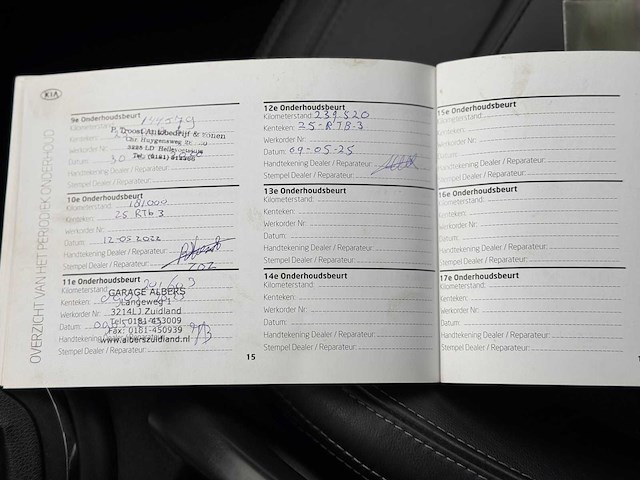 KIA
OVERZICHT VAN HET PERIODIEK ONDERHOUD
9e Onderhoudsbeurt
Kilometerstand:
P. Troost Autobedrijf &
Kenteken:
Chr Huygensweg
Werkorder Nr
3225 LD Hellevoetsluis
Datum: 30
Tel. (0181)
Handtekening Dealer / Reparateur:
Stempel Dealer / Reparateur:
10e Onderhoudsbeurt
Kilometerstand: 181000
Kenteken: 25 RTb 3
werkorder Nr:
Datum: 12-05-2022
Handtekening Dealer / Reparateur:
Stempel Dealer / Reparateur:
11e Onderhoudsbeurt
Kilometerstand:
GARAGE ALBERS
Kenteken:
Langeweg 1
Werkorder Nr:
3214LJ Zuidland
Datum:
Tel: 0181-453009
Fax: 0181-450939
Handtekening Dealer / Reparateur:
www.alberszuidland.nl
Stempel Dealer / Reparateur:
15
12e Onderhoudsbeurt
Kilometerstand: 239520
Kenteken: 25-RTB-3
Werkorder Nr:
Datum: 09-05-25
Handtekening Dealer / Reparateur:
Stempel Dealer / Reparateur:
13e Onderhoudsbeurt
Kilometerstand:
Kenteken:
Werkorder Nr:
Datum:
Handtekening Dealer / Reparateur:
Stempel Dealer / Reparateur:
14e Onderhoudsbeurt
Kilometerstand:
Kenteken:
Werkorder Nr:
Datum:
Handtekening Dealer / Reparateur:
Stempel Dealer / Reparateur:
15e Onderhoudsbeurt
Kilometerstand:
Kenteken:
Werkorder Nr:
Datum:
Handtekening Dealer / Reparateur:
Stempel Dealer / Reparateur:
16e Onderhoudsbeurt
Kilometerstand:
Kenteken:
Werkorder Nr:
Datum:
Handtekening Dealer / Reparateur:
Stempel Dealer / Reparateur:
17e Onderhoudsbeurt
Kilometerstand:
Kenteken:
Werkorder Nr:
Datum:
Handtekening Dealer / Reparateur:
Stempel Dealer / Reparateur: